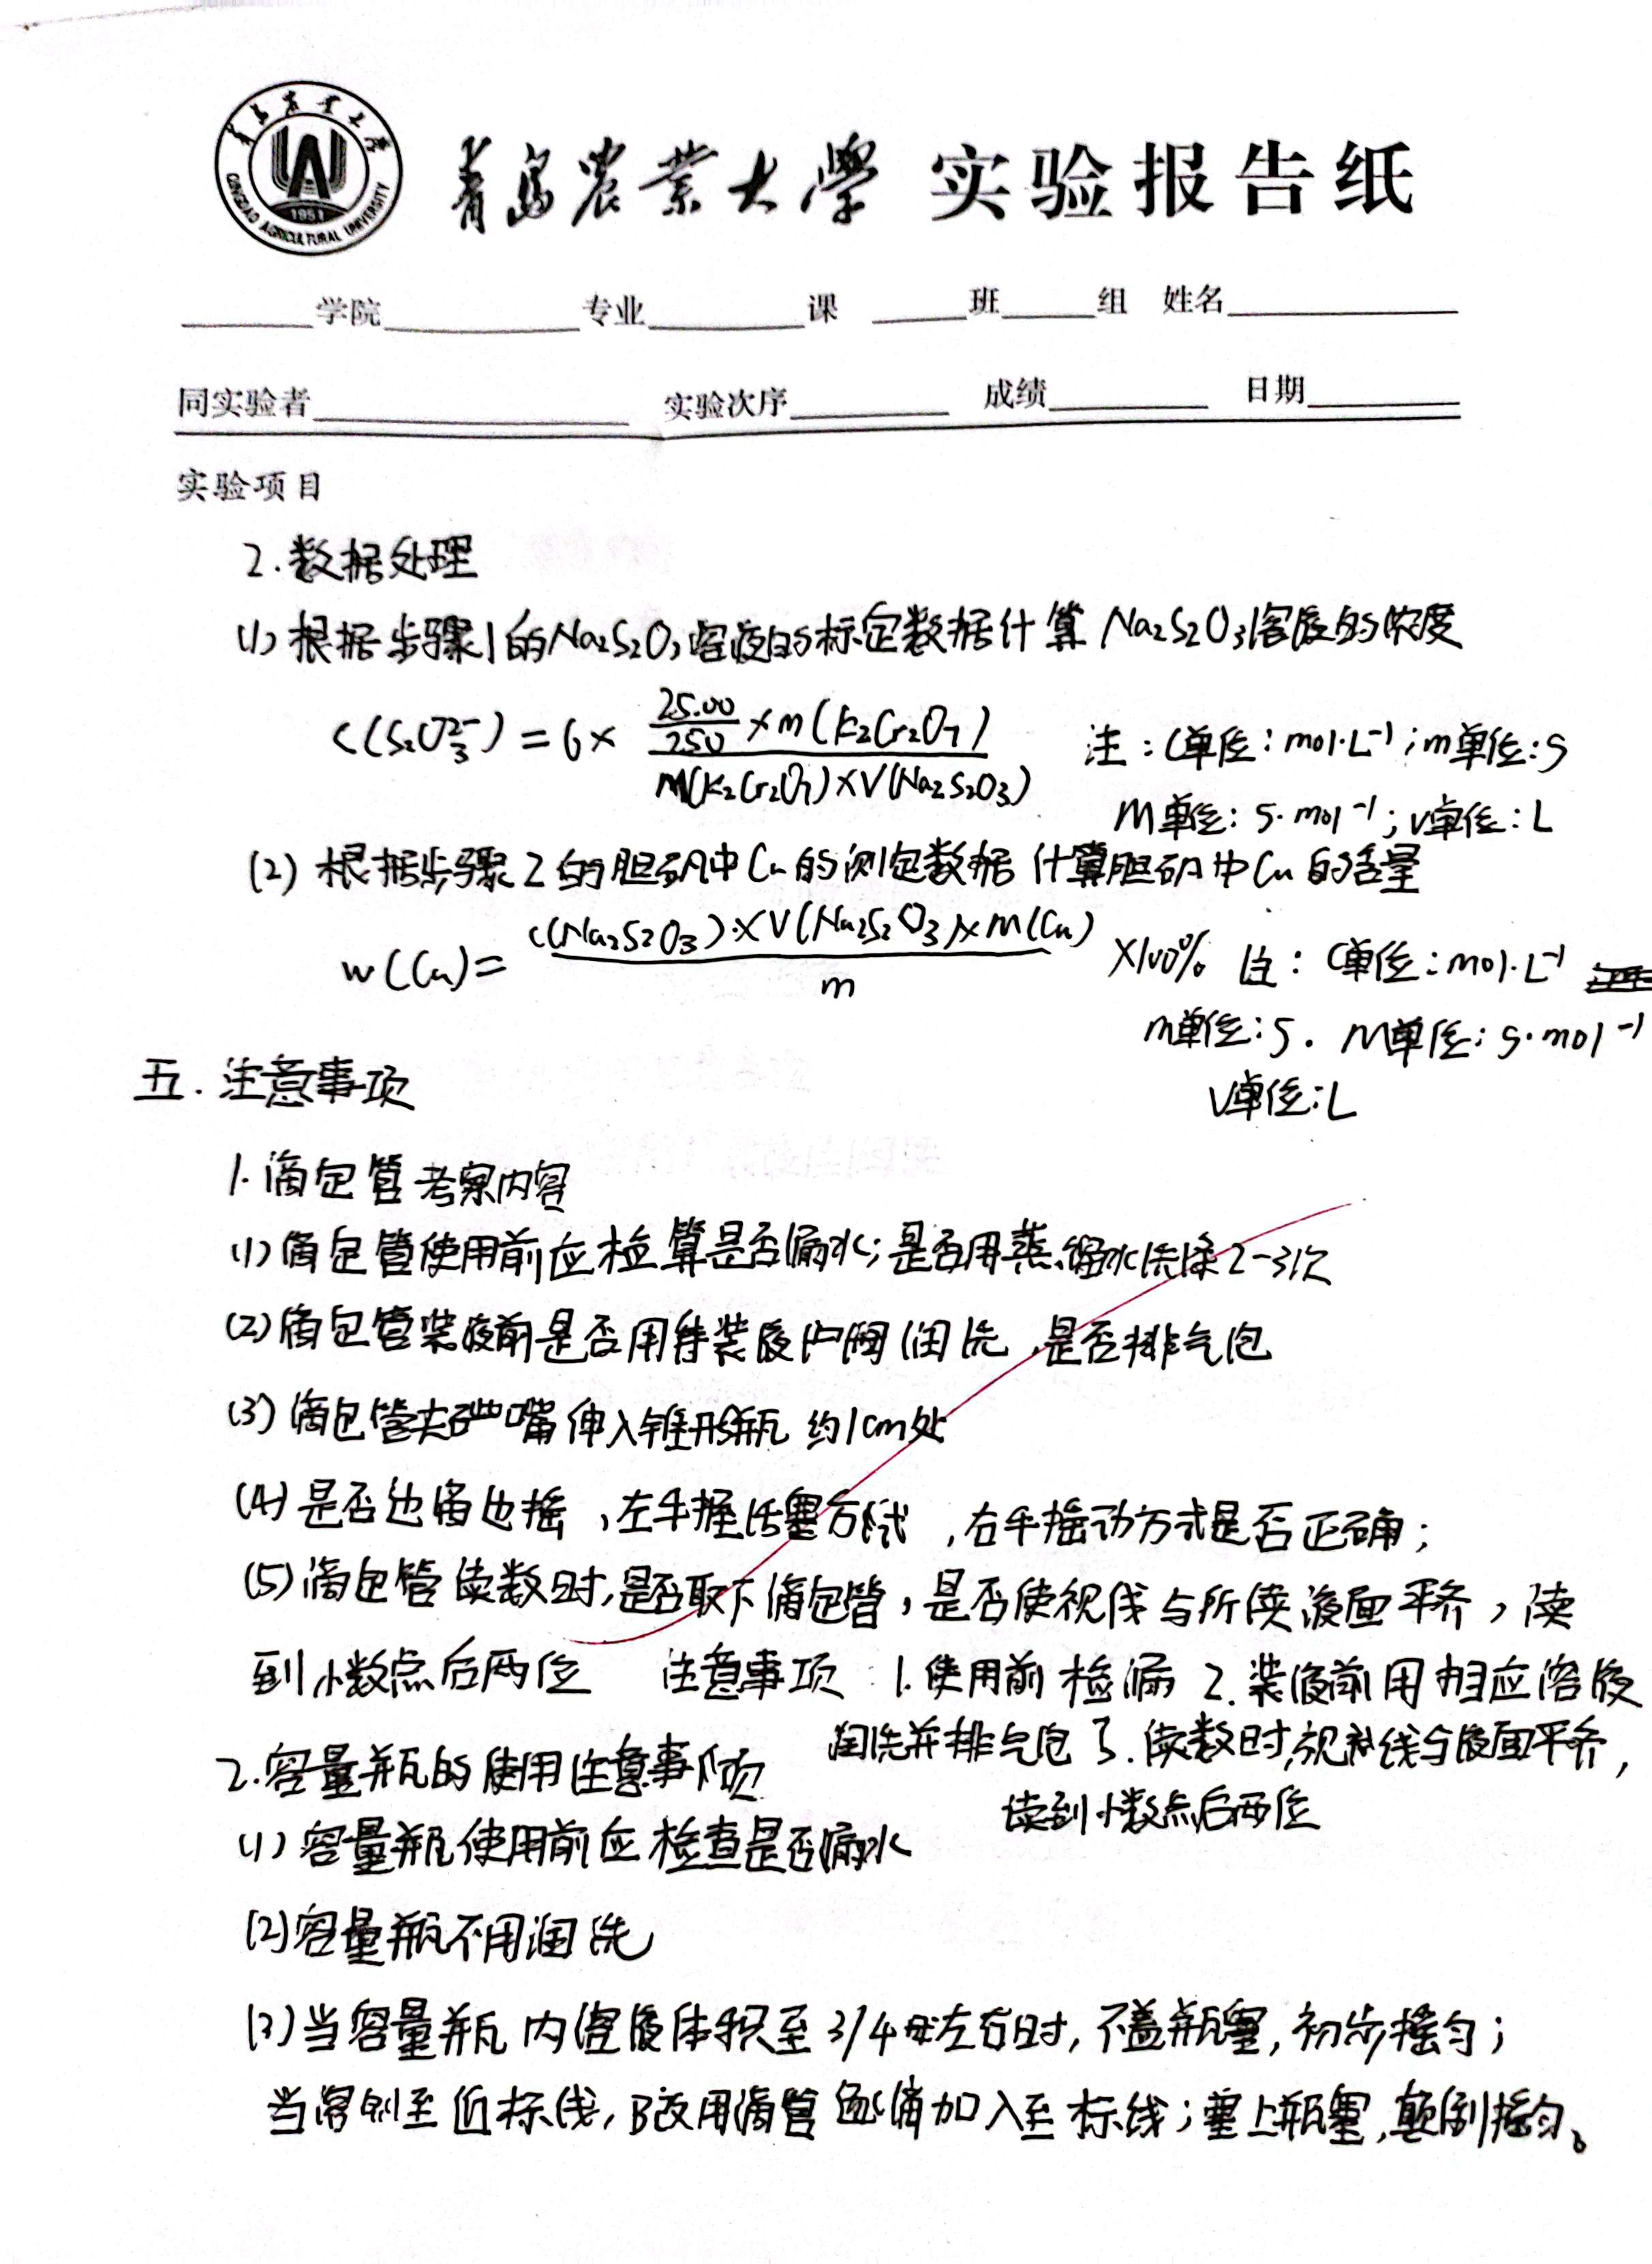 青岛农业大学
QINGDAO AGRICULTURAL UNIVERSITY
1951
青岛农业大学 实验报告纸
学院 专业 课 班 组 姓名
同实验者 实验次序 成绩 日期
实验项目
2.数据处理
(1)根据步骤1的Na₂S₂O₃溶液的标定数据计算Na₂S₂O₃溶液的浓度
c(S₂O₃²⁻) = 6 × (25.00/250 × m(K₂Cr₂O₇)) / (M(K₂Cr₂O₇) × V(Na₂S₂O₃)) 注:C单位:mol·L⁻¹;m单位:g
M单位:g·mol⁻¹;V单位:L
(2)根据步骤2的胆矾中Cu的测定数据计算胆矾中Cu的含量
w(Cu) = (c(Na₂S₂O₃)·×V(Na₂S₂O₃)×M(Cu)) / m ×100% 注:C单位:mol·L⁻¹
m单位:g. M单位:g·mol⁻¹
V单位:L
五.注意事项
1.滴定管考察内容
(1)滴定管使用前应检算是否漏水;是否用蒸馏水洗涤2-3次
(2)滴定管装液前是否用待装液润洗,是否排气泡
(3)滴定管尖嘴伸入锥形瓶约1cm处
(4)是否边滴边摇,左手握活塞方式,右手摇动方式是否正确;
(5)滴定管读数时,是否取下滴定管,是否使视线与所读液面平齐,读
到小数点后两位 注意事项:1.使用前检漏 2.装液前用相应溶液
润洗并排气泡 3.读数时,视线与液面平齐,
读到小数点后两位
2.容量瓶的使用注意事项
(1)容量瓶使用前应检查是否漏水
(2)容量瓶不用润洗
(3)当容量瓶内溶液体积至3/4左右时,不盖瓶塞,初步摇匀;
当溶剂至近标线,改用滴管逐滴加入至标线;塞上瓶塞,颠倒摇匀。